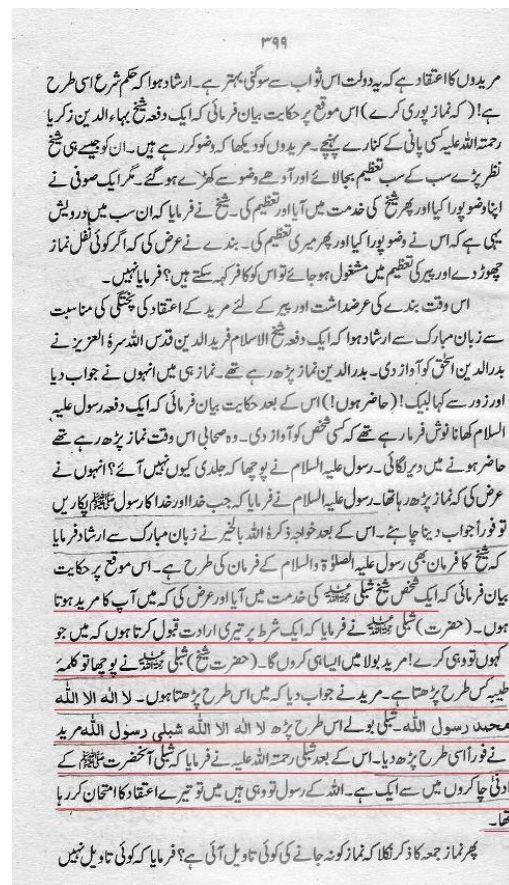 ۳۹۹
مریدوں کا اعتقاد ہے کہ یہ دولت اس ثواب سے سوگنی بہتر ہے۔ ارشاد ہوا کہ حکم شرع اسی طرح
ہے! (کہ نماز پوری کرے) اس موقع پر حکایت بیان فرمائی کہ ایک دفعہ شیخ بہاء الدین زکریا
رحمتہ اللہ علیہ کسی پانی کے کنارے پہنچے۔ مریدوں کو دیکھا کہ وضو کر رہے ہیں۔ ان کو جیسے ہی شیخ
نظر پڑے سب کے سب تعظیم بجا لائے اور آدھے وضو سے کھڑے ہو گئے۔ مگر ایک صوفی نے
اپنا وضو پورا کیا اور پھر شیخ کی خدمت میں آیا اور تعظیم کی۔ شیخ نے فرمایا کہ ان سب میں درویش
یہی ہے کہ اس نے وضو پورا کیا اور پھر میری تعظیم کی۔ بندے نے عرض کی کہ اگر کوئی نفل نماز
چھوڑ دے اور پیر کی تعظیم میں مشغول ہو جائے تو اس کو کافر کہہ سکتے ہیں؟ فرمایا نہیں۔
اس وقت بندے کی عرضداشت اور پیر کے لئے مرید کے اعتقاد کی پختگی کی مناسبت
سے زبان مبارک سے ارشاد ہوا کہ ایک دفعہ شیخ الاسلام فرید الدین قدس اللہ سرہٗ العزیز نے
بدرالدین اسحٰق کو آواز دی۔ بدرالدین نماز پڑھ رہے تھے۔ نماز ہی میں انہوں نے جواب دیا
اور زور سے کہا لبیک! (حاضر ہوں!) اس کے بعد حکایت بیان فرمائی کہ ایک دفعہ رسول علیہ
السلام کھانا نوش فرما رہے تھے کہ کسی شخص کو آواز دی۔ وہ صحابی اس وقت نماز پڑھ رہے تھے
حاضر ہونے میں دیر لگائی۔ رسول علیہ السلام نے پوچھا کہ جلدی کیوں نہیں آئے؟ انہوں نے
عرض کی کہ نماز پڑھ رہا تھا۔ رسول علیہ السلام نے فرمایا کہ جب خدا اور خدا کا رسول ﷺ پکاریں
تو فوراً جواب دینا چاہئے۔ اس کے بعد خواجہ ذکرہٗ اللہ بالخیر نے زبان مبارک سے ارشاد فرمایا
کہ شیخ کا فرمان بھی رسول علیہ الصلوٰۃ والسلام کے فرمان کی طرح ہے۔ اس موقع پر حکایت
بیان فرمائی کہ ایک شخص شیخ شبلی کی خدمت میں آیا اور عرض کی کہ میں آپ کا مرید ہوتا
ہوں۔ (حضرت) شبلی نے فرمایا کہ ایک شرط پر تیری ارادت قبول کرتا ہوں کہ میں جو
کہوں تو وہی کرے! مرید بولا میں ایسا ہی کروں گا۔ (حضرت شیخ) شبلی نے پوچھا تو کلمۂ
طیبہ کس طرح پڑھتا ہے۔ مرید نے جواب دیا کہ میں اس طرح پڑھتا ہوں۔ لا الٰه الا الله
محمد رسول الله۔ شبلی بولے اس طرح پڑھ لا الٰه الا الله شبلی رسول الله مرید
نے فوراً اسی طرح پڑھ دیا۔ اس کے بعد شبلی رحمتہ اللہ علیہ نے فرمایا کہ شبلی آنحضرت ﷺ کے
ادنیٰ چاکروں میں سے ایک ہے۔ اللہ کے رسول تو وہی ہیں میں تو تیرے اعتقاد کا امتحان کر رہا
تھا۔
پھر نماز جمعہ کا ذکر نکلا کہ نماز کو نہ جانے کی کوئی تاویل آئی ہے؟ فرمایا کہ کوئی تاویل نہیں